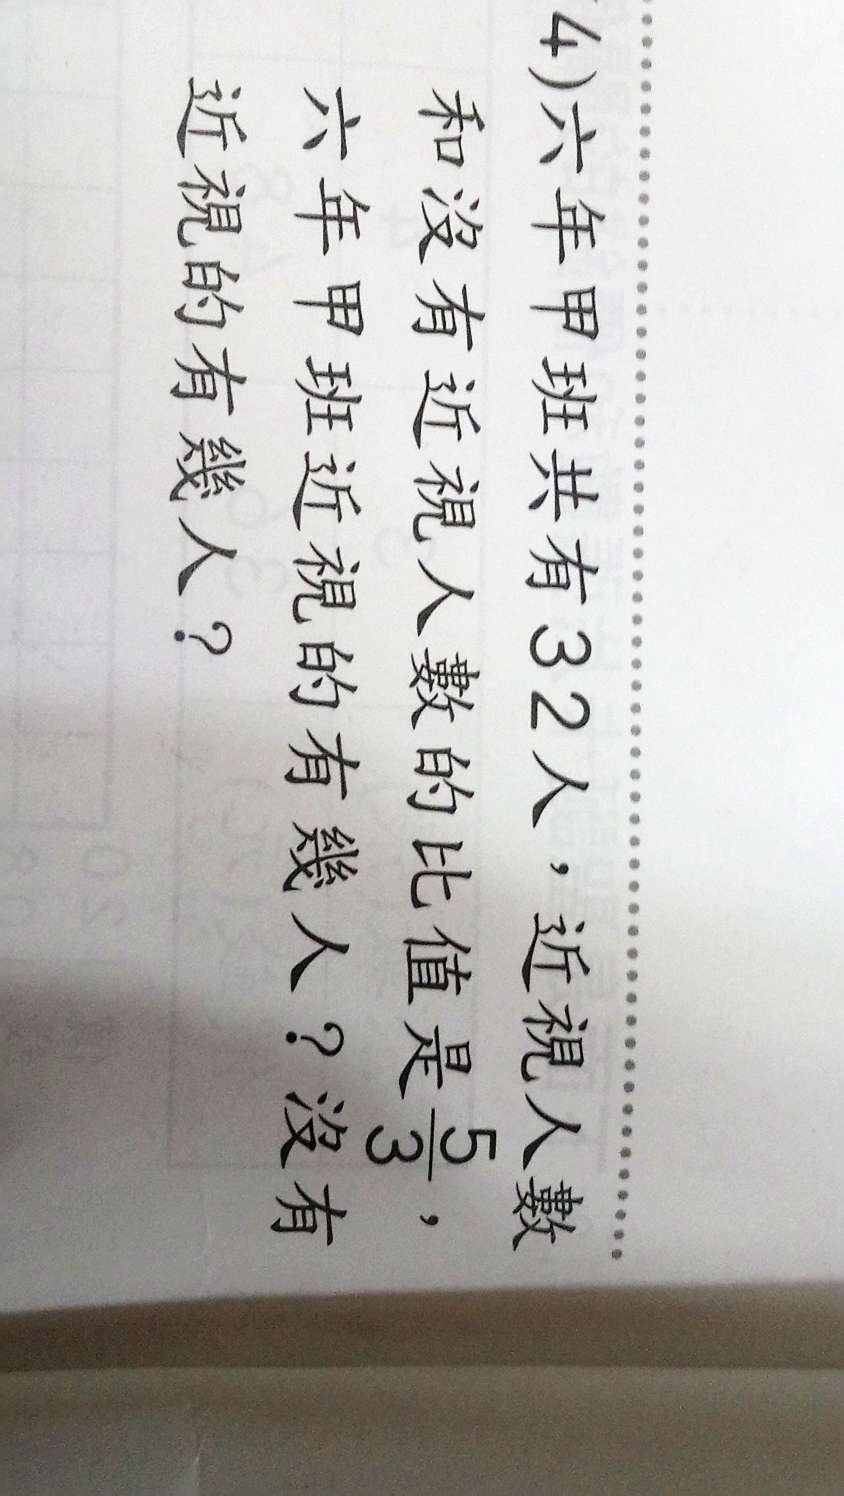 4)六年甲班共有32人，近視人數
和沒有近視人數的比值是5/3，
六年甲班近視的有幾人？沒有
近視的有幾人？